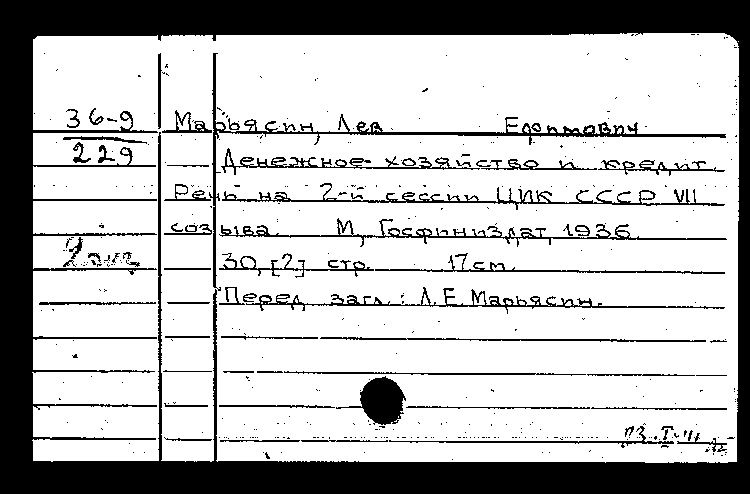 36-9 Марьясин, Лев Ефимович
229 Денежное хозяйство и кредит.
Речь на 2-й сессии ЦИК СССР VII
созыва. М, Госфиниздат, 1936.
2 экз 30, [2.] стр. 17 cm.
Перед загл.: Л.Е. Марьясин.